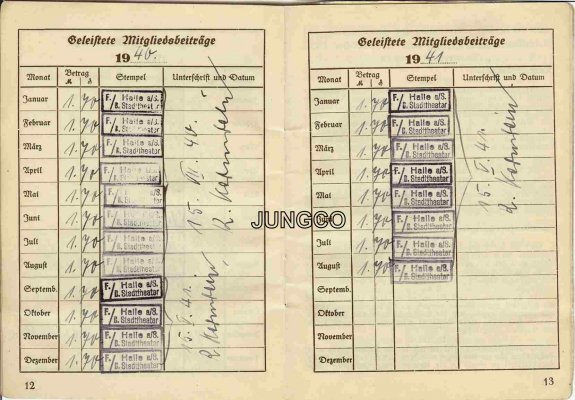 Geleistete Mitgliedsbeiträge
19 40.
Monat Betrag Stempel Unterschrift und Datum
M ₰
Januar 1. 70 F./ Halle a/S. D. Stadttheater
Februar 1. 70 F./ Halle a/S. D. Stadttheater
März 1. 70 F./ Halle a/S. D. Stadttheater
April 1. 70 F./ Halle a/S. D. Stadttheater
Mai 1. 70 F./ Halle a/S. D. Stadttheater
Juni 1. 70 F./ Halle a/S. D. Stadttheater
Juli 1. 70 F./ Halle a/S. D. Stadttheater
August 1. 70 F./ Halle a/S. D. Stadttheater
Septemb. 1. 70 F./ Halle a/S. D. Stadttheater
Oktober 1. 70 F./ Halle a/S. D. Stadttheater
November 1. 70 F./ Halle a/S. D. Stadttheater
Dezember 1. 70 F./ Halle a/S. D. Stadttheater
15. VII. 40.
15. V. 41.
12
JUNGGO
Geleistete Mitgliedsbeiträge
19 41
Monat Betrag Stempel Unterschrift und Datum
M ₰
Januar 1. 70 F./ Halle a/S. D. Stadttheater
Februar 1. 70 F./ Halle a/S. D. Stadttheater
März 1. 70 F./ Halle a/S. D. Stadttheater
April 1. 70 F./ Halle a/S. D. Stadttheater
Mai 1. 70 F./ Halle a/S. D. Stadttheater
Juni 1. 70 F./ Halle a/S. D. Stadttheater
Juli 1. 70 F./ Halle a/S. D. Stadttheater
August 1. 70 F./ Halle a/S. D. Stadttheater
Septemb.
Oktober
November
Dezember
15. V. 41.
13